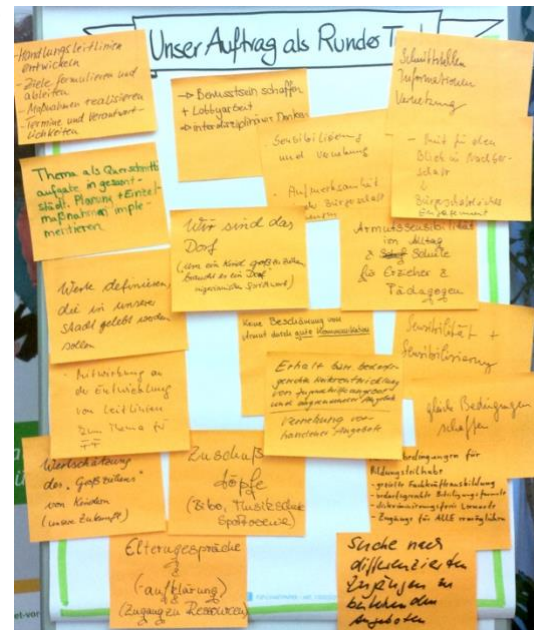 Unser Auftrag als Runder
- Handlungsleitlinien
entwickeln
- Ziele formulieren und
ableiten
- Maßnahmen realisieren
- Termine und Verantwort-
lichkeiten
→ Bewusstsein schaffen
+ Lobbyarbeit
→ interdisziplinäres Denken
Schnittstellen
Informationen
Vernetzung
Sensibilisierung
und Vernetzung
- Aufmerksamkeit
Bürgerschaft
Blick in Nachbar-
schaft
Bürgerschaftliches
Engagement
Thema als Querschnitts
aufgabe in gesamt-
städt. Planung + Einzel-
maßnahmen imple-
mentieren.
Wir sind das
Dorf
(um ein Kind groß zu ziehen
braucht es ein Dorf
Armutssensibilität
im Alltag
Schule
für Erzieher &
Pädagogen
Werte definieren,
die in unserer
Stadt gelebt werden
sollen
Keine Beschämung von
Armut durch gute Kommunikation
Sensibilität +
Sensibilisierung
- Mitwirkung an
der Entwicklung
von Leitlinien
zum Thema
Erhalt bzw. bedarfs-
gerechte Weiterentwicklung
Vernetzung vor-
handener Angebote
gleiche Bedingungen
schaffen
Wertschätzung
des "Großziehens"
von Kindern
(unsere Zukunft)
Zuschuß
töpfe
(Bibo, Musikschule
bedingungen für
Bildungsteilhabe
- gezielte Fachkräfteausbildung
- diskriminierungsfreie Lernorte
- Zugänge für ALLE ermöglichen
Elterngespräche
(-aufklärung)
(Zugang zu Ressourcen)
Suche nach
differenzierten
Zugängen zu
bestehenden
Angeboten